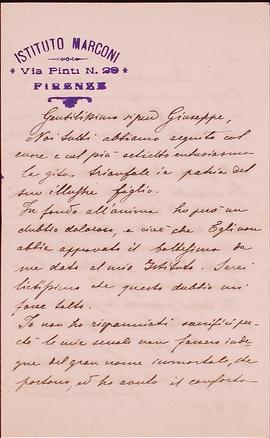 ISTITUTO MARCONI
* Via Pinti N. 29 *
FIRENZE
Gentilissimo signor Giuseppe,
Noi tutti abbiamo seguito col
cuore e col più schietto entusiasmo
la gita trionfale in patria del
suo illustre figlio.
In fondo all'anima ho però un
dubbio doloroso, e cioè che Egli non
abbia approvato il battesimo da
me dato al mio Istituto. Sarei
lietissimo che questo dubbio mi
fosse tolto.
Io non ho risparmiati sacrifici per-
chè le mie scuole non fossero inde-
gne del gran nome immortale, che
portano, ed ho avuto il conforto